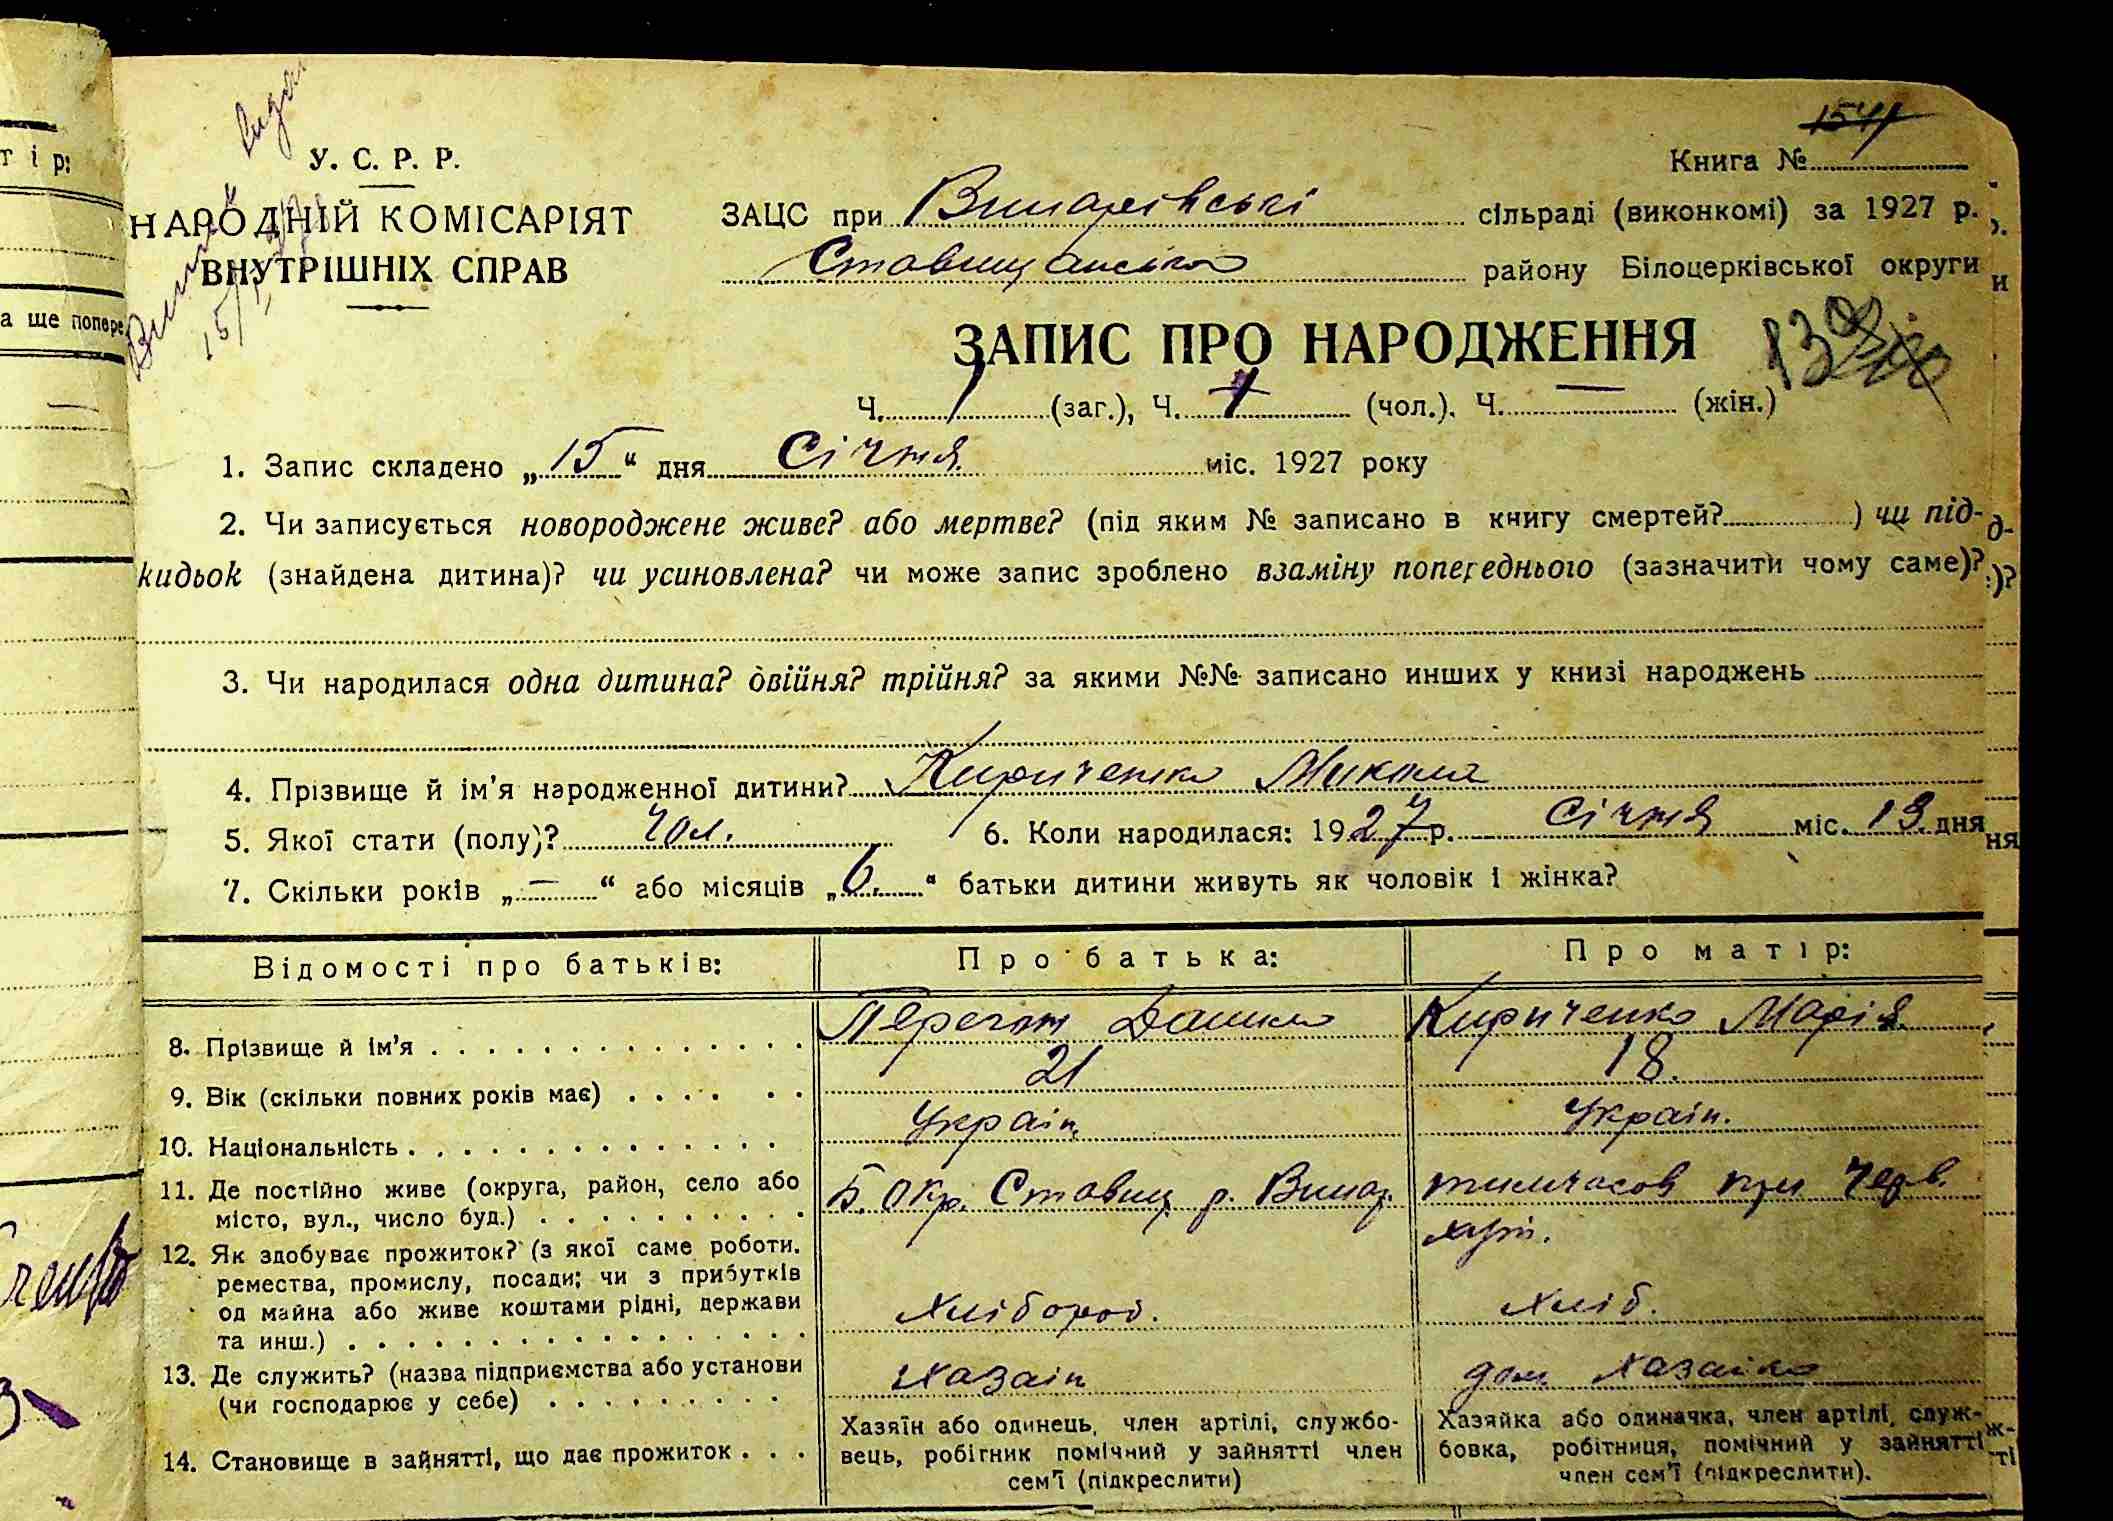 1541
У. С. Р. Р.
Книга №
НАРОДНІЙ КОМІСАРІЯТ
ВНУТРІШНІХ СПРАВ
ЗАЦС при Винарівські сільраді (виконкомі) за 1927 р.
Ставищансько району Білоцерківської округи
ЗАПИС ПРО НАРОДЖЕННЯ
Ч. 1 (заг.), Ч. 1 (чол.). Ч. — (жін.)
1. Запис складено „15“ дня Січня міс. 1927 року
2. Чи записується новороджене живе? або мертве? (під яким № записано в книгу смертей? ) чи під-
кидьок (знайдена дитина)? чи усиновлена? чи може запис зроблено взаміну попереднього (зазначити чому саме)?
3. Чи народилася одна дитина? двійня? трійня? за якими №№ записано инших у книзі народжень
4. Прізвище й ім'я народженної дитини? Кириченко Микола
5. Якої стати (полу)? Чол. 6. Коли народилася: 1927 р. Січня міс. 13 дня
7. Скільки років „—“ або місяців „6.“ батьки дитини живуть як чоловік і жінка?
Відомості про батьків: Про батька: Про матір:
8. Прізвище й ім'я Данило Кириченко Марія
9. Вік (скільки повних років має) 21 18.
10. Національність Україн. Україн.
11. Де постійно живе (округа, район, село або
місто, вул., число буд.) Б. Окр. Ставищ. р. Винар. тимчасов при Черв.
хут.
12. Як здобуває прожиток? (з якої саме роботи.
ремества, промислу, посади; чи з прибутків
од майна або живе коштами рідні, держави
та инш.) Хлібороб. Хліб.
13. Де служить? (назва підприємства або установи
(чи господарює у себе) Хазаін дом. Хазайка
14. Становище в зайнятті, що дає прожиток
Хазяїн або одинець, член артілі, службо-
вець, робітник помічний у зайнятті член
сем'ї (підкреслити)
Хазяйка або одиначка, член артілі, служ-
бовка, робітниця, помічний у зайнятті
член сем'ї (підкреслити).